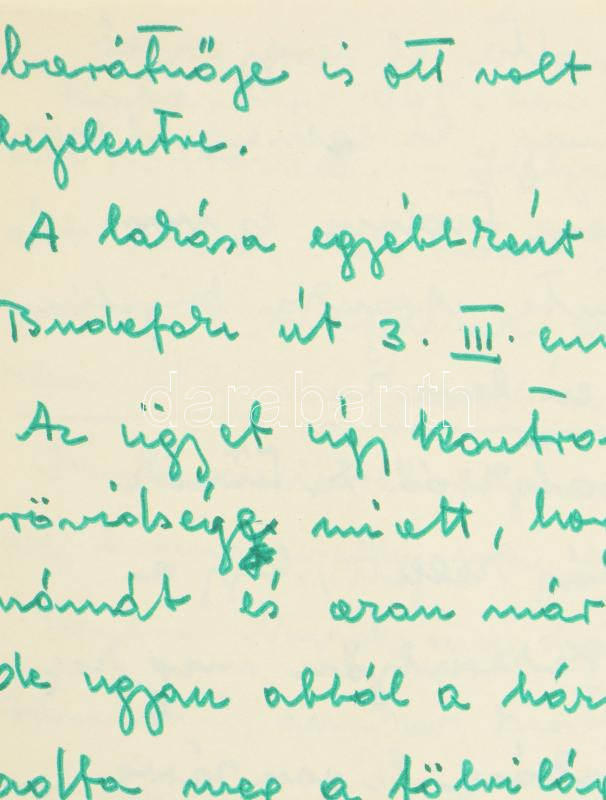 barátnője is ott volt
bejelentve.
A lakása egyébként
Budafoki út 3. III. em
Az ügyet úgy kontro-
rövidsége miatt, hog
számát és azon már
de ugyan abból a hár
adta meg a fölvilág
darabanth